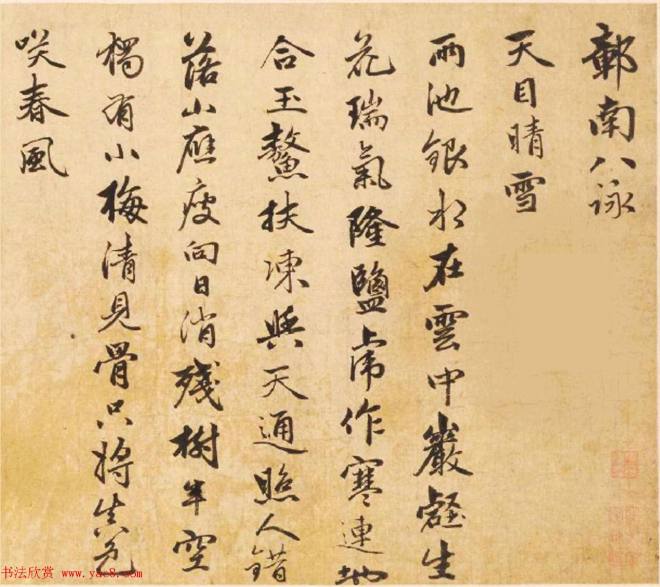 鄣南八詠
天目晴雪
兩池銀水在雲中巖壑生
花瑞氣隆鹽虎作寒連地
合玉鰲扶凍與天通照人錯
落山應瘦向日消殘樹半空
獨有小梅清見骨只將真色
咲春風
书法欣赏 www.yac8.com